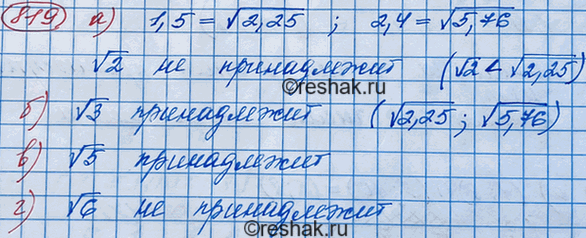 819 а) 1,5 = √2,25 ; 2,4 = √5,76
√2 не принадлежит (√2 < √2,25)
©reshak.ru
б) √3 принадлежит (√2,25 ; √5,76)
в) √5 принадлежит
г) √6 не принадлежит
©reshak.ru